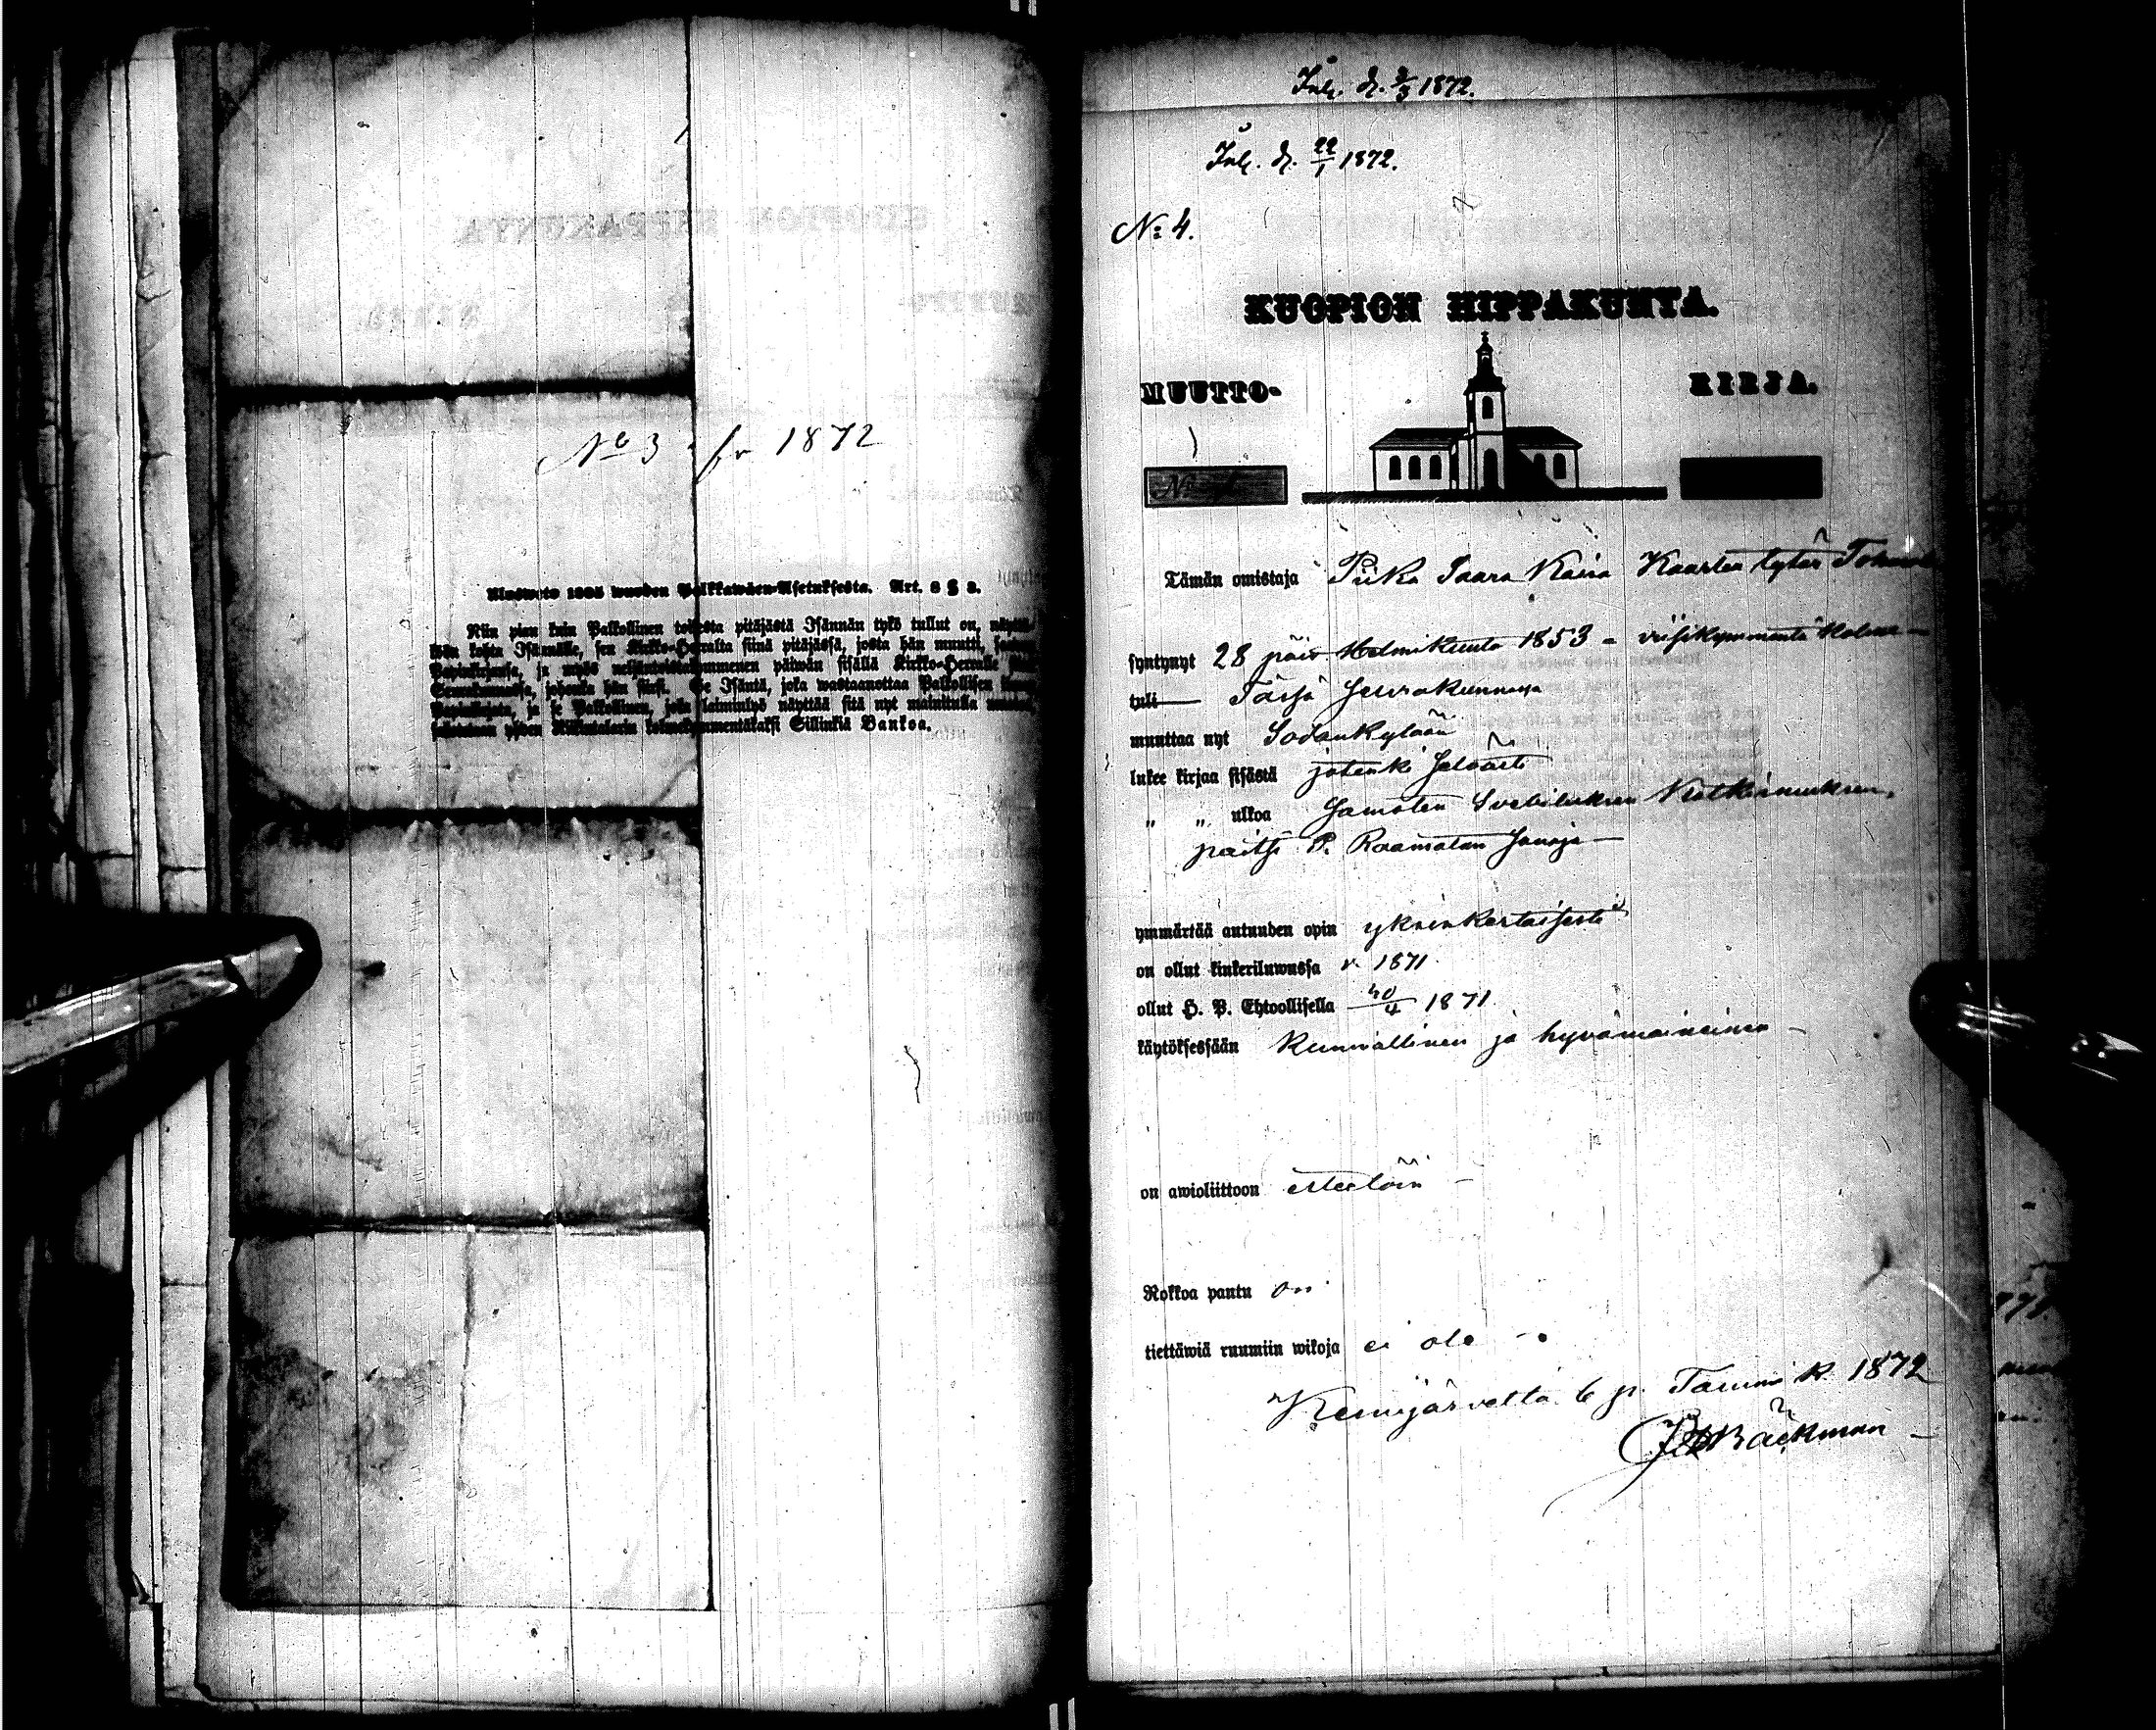 No 3 fr 1872
Ulosweto 1805 wuoden Palkkawäen-Asetuksesta. Art. 8 § 3.
Niin pian kuin Palkollinen toisesta pitäjästä Isännän tykö tullut on, näyttä-
hän kohta Isännälle, sen Kirkko-Herralta siinä pitäjässä, josta hän muutti,
ja myös neljäntoistakymmenen päiwän sisällä Kirkko-Herralle
Seurakunnassa, johonka hän siirsi. Se Isäntä, joka wastaanottaa Palkollisen
ja se Palkollinen, joka laiminlyö näyttää sitä nyt mainitulla
kolmekymmentäkaksi Sillinkiä Bankoa.
Inl. d. 3/3 1872.
Inl. d. 22/1 1872.
No 4.
KUOPION HIPPAKUNTA.
MUUTTO- KIRJA.
No
Tämän omistaja Piika Saara Kaisa Kaarlen tytär
syntynyt 28 päiv. Helmikuuta 1853 - viisikymmentä kolme -
tuli Tässä seurakunnassa
muuttaa nyt Sodankylään
lukee kirjaa sisästä jotenki selvästi
" " ulkoa Samoten Svebiliuksen Katkismuksen,
paitsi P. Raamatun Sanoja -
ymmärtää autuuden opin yksinkertaisesti
on ollut kinkeriluwussa v. 1871
ollut H. P. Ehtoollisella 1871
käytöksessään kunniallinen ja hyvämaineinen -
on awioliittoon esteetöin -
Rokkoa pantu on
tiettäwiä ruumiin wikoja ei ole -
Kemijärveltä 6 p. Tammi k. 1872
Bäckman